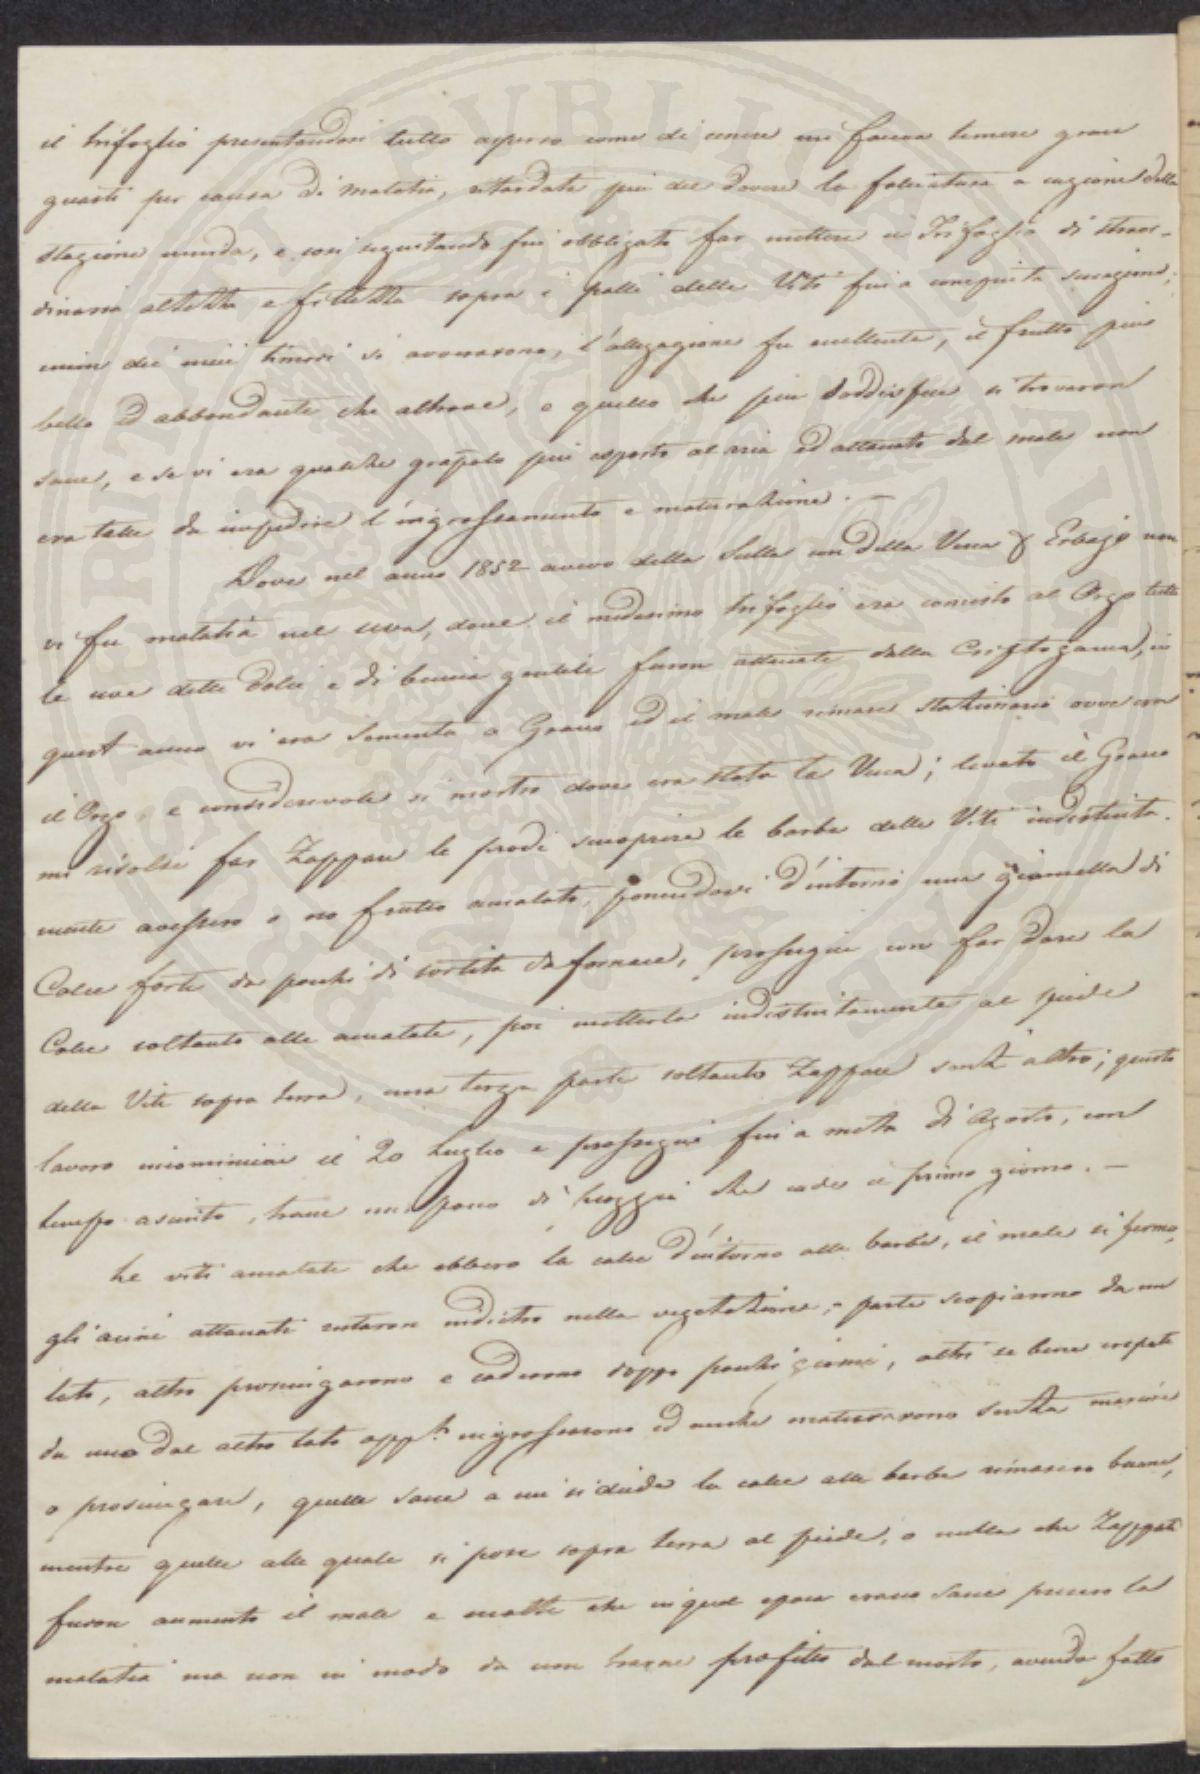 il trifoglio presentandosi tutto asperso come di cenere mi faceva temere gravi
guasti per causa di malatia, ritardata più del dovere la falciatura a cagione della
stagione umida, e così seguitando fui obbligato far mettere il Trifoglio di straor-
dinaria altezza e foltezza sopra i palli delle Viti fin a compiuta sucagione,
niun dei miei timori si avverarono, l'allegagione fu eccellente, il frutto più
bello ed abbondante che altrove, e quello che più soddisfece si trovaron
sane, e se vi era qualche grapolo più esposto al aria ed attacato dal male non
era tale da impedire l'ingrossamento e maturazione. —
Dove nel anno 1852 avevo della Sulla con della Vecca e Erbajo non
vi fu malatia nel uva, dove il medesimo trifoglio era concisto al Orzo tutte
le uve dette Dolci e di buccia gentile furon attacate dalla Criptogama, in
quest anno vi era Sementa a Grano ed il male rimase stazionario ovve era
il Orzo, e considerevole si mostrò dove era stata la Vecca; levato il Grano
mi risolsi far Zappare le prode scuoprire le barbe delle Viti indistinta-
mente avessero o no frutto amalato, ponendovi d'intorno una giomella di
Calce forte da pochi dì sortita da fornace, proseguii con far dare la
Calce soltanto alle amalate, poi metterla indistintamente al piede
della Vite sopra terra, una terza parte soltanto Zappare senz'altro; questo
lavoro incominciai il 20 Luglio e proseguii fin a metà di Agosto, con
tempo asciuto, trane un poco di pioggia che cade il primo giorno. —
Le viti amalate che ebbero la calce d'intorno alle barbe, il male si fermò,
gli acini attacati restaron indietro nella vegetazione, parte scopiarono da un
lato, altri prosciugarono e caderono doppo pochi giorni, altri se bene crepati
da uno dal altro lato opp.to ingrossarono ed anche maturarono senza marcire
o prosciugare, quelle sane a cui si diede la calce alle barbe rimasero buone,
mentre quelle alle quale si pose sopra terra al piede, o nulla che Zappate
furon aumentò il male e molte che in quel epoca erano sane presero la
malatia ma non in modo da non trarne profitto dal mosto, avendo fatto